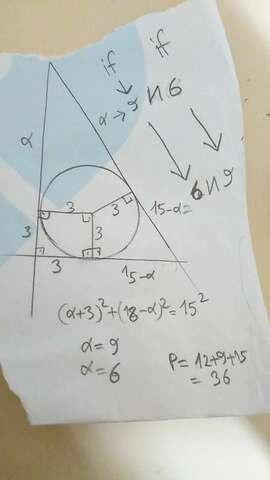 if if
α → 9 и 6
6 и 9
α
3
3
3
3
3
15-α=
15-α
(α+3)²+(18-α)²=15²
α=9
α=6
P=12+9+15
=36